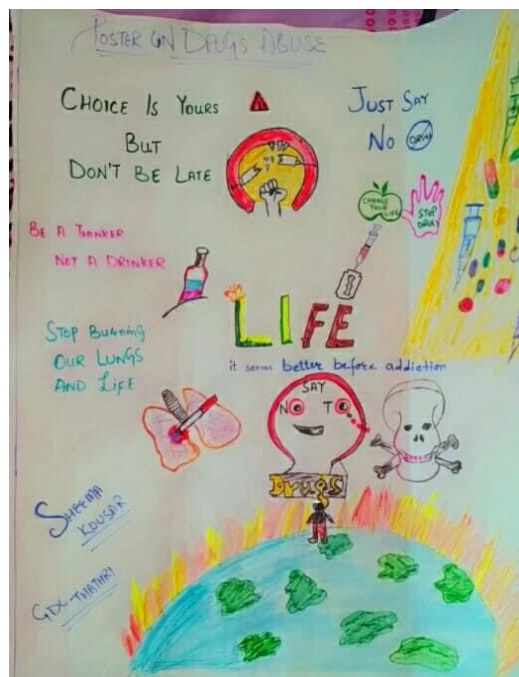 POSTER ON DRUGS ABUSE
CHOICE IS YOURS
BUT
DON'T BE LATE
JUST SAY
NO DRUGS
CHANGE
YOUR
LIFE
STOP
DRUGS
BE A THINKER
NOT A DRINKER
LIFE
it seems better before addiction
STOP Burning
OUR LUNGS
AND LIFE
SAY
NO TO
Drugs
SHEEMA
KOUSAR
GDC THATHRI